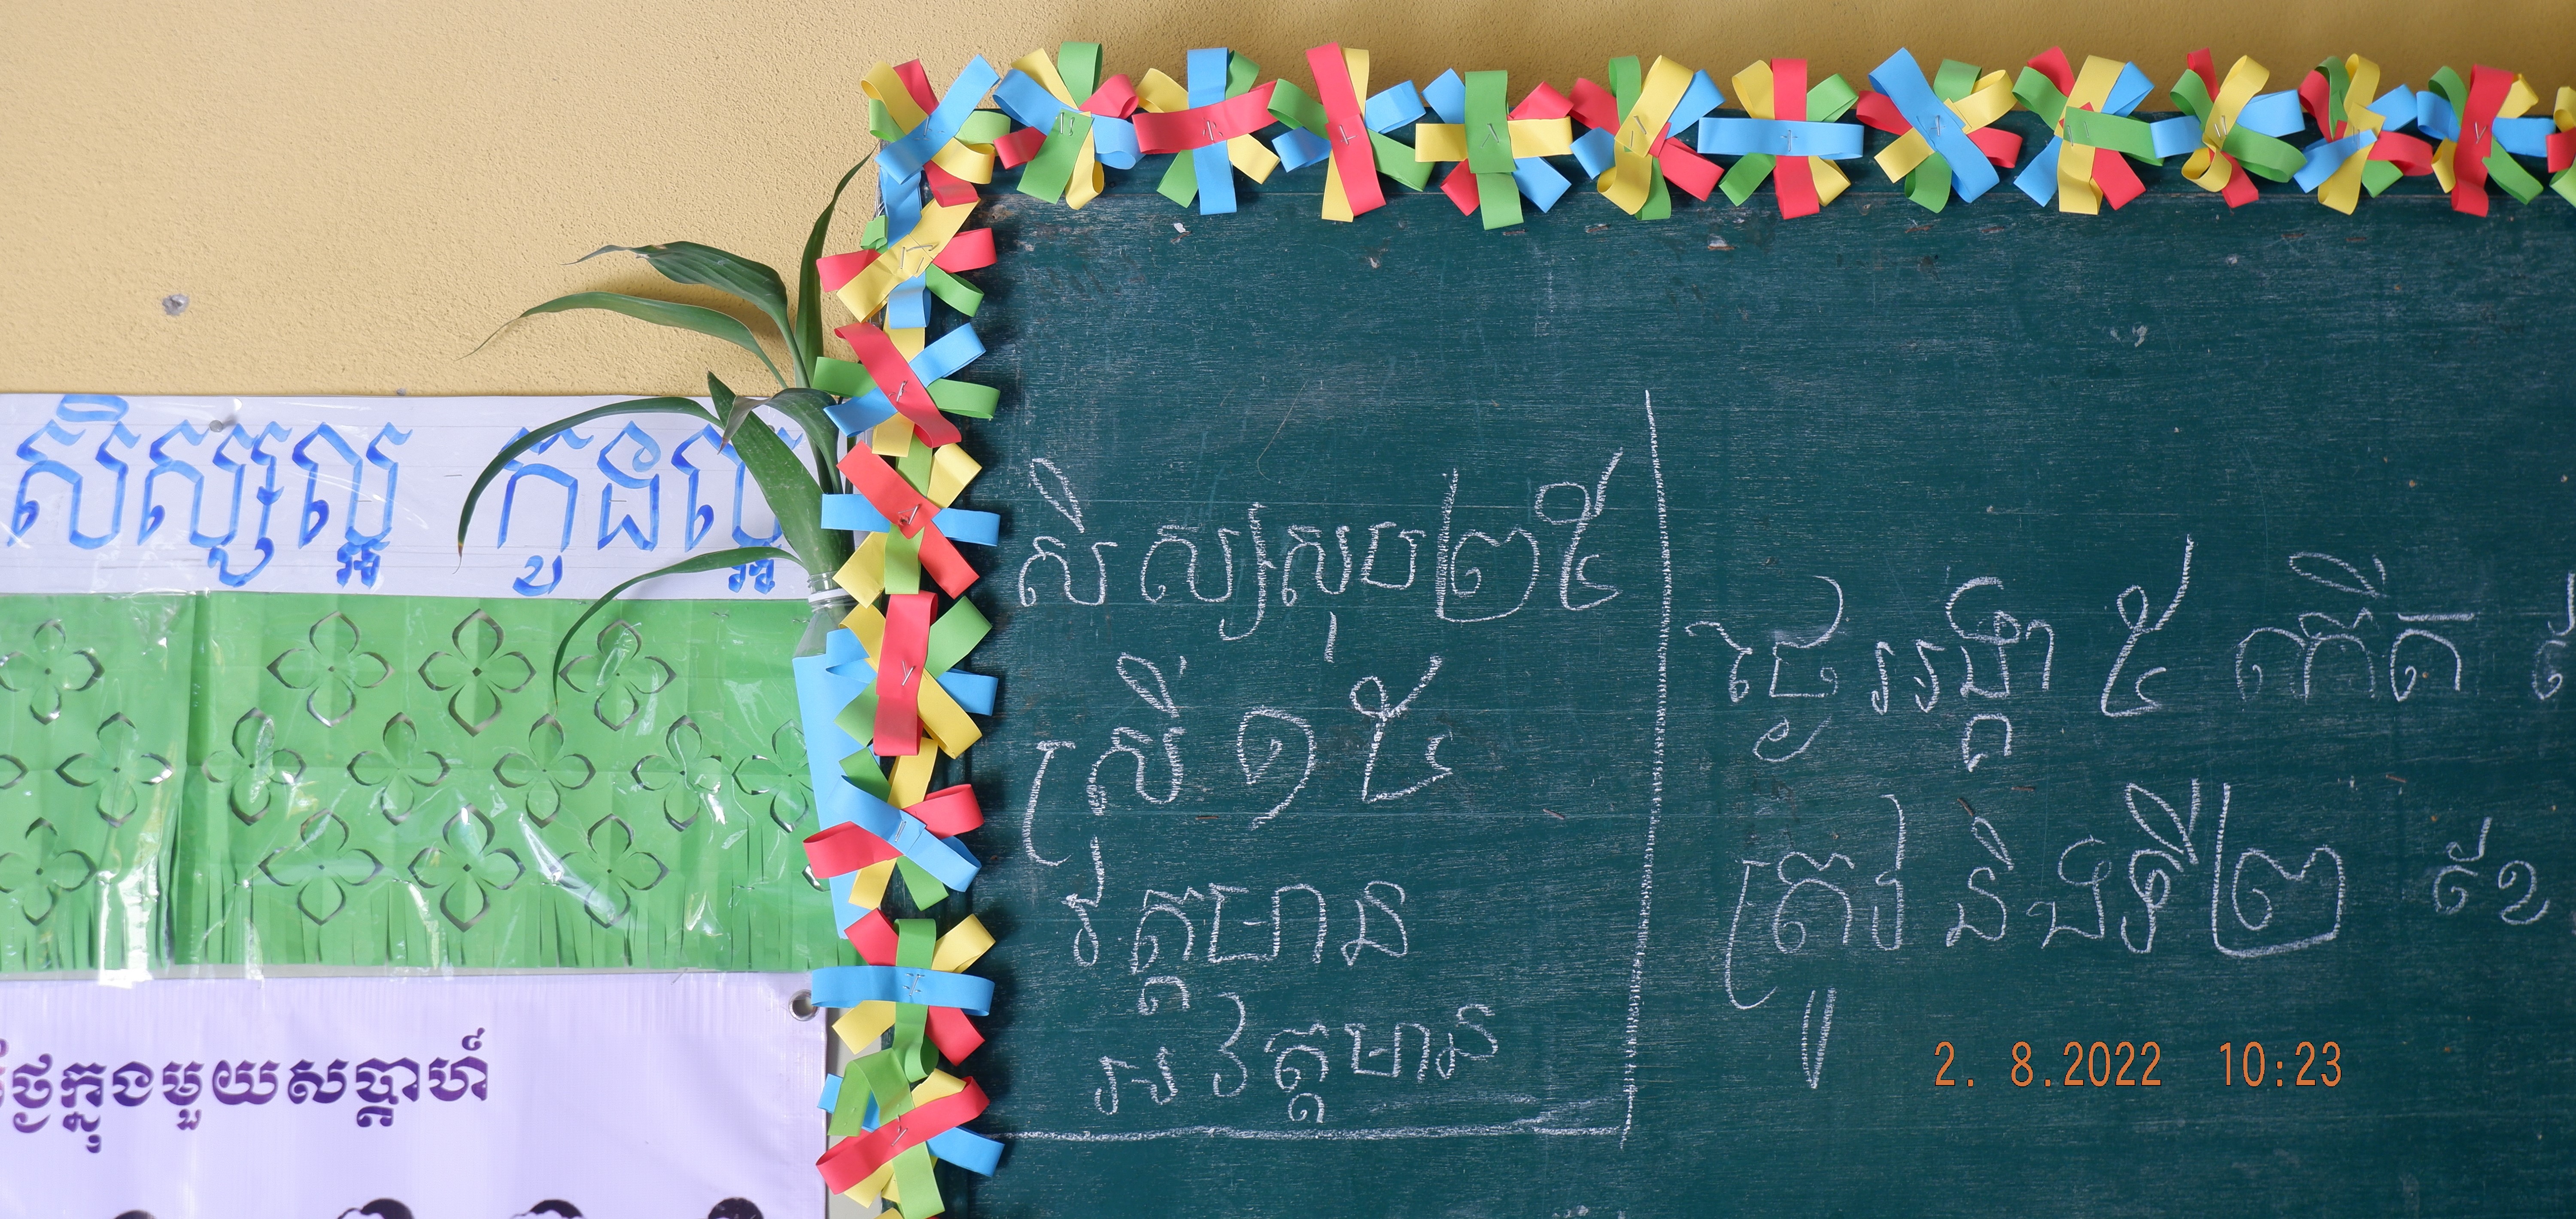 សិស្សល្អ កូនល្អ
ថ្ងៃក្នុងមួយសប្ដាហ៍
សិស្សសរុប២៥
ស្រី ១៥
វត្តមាន
អវត្តមាន
ថ្ងៃអង្គារ ៥ កើត
និងទី២
2. 8.2022 10:23